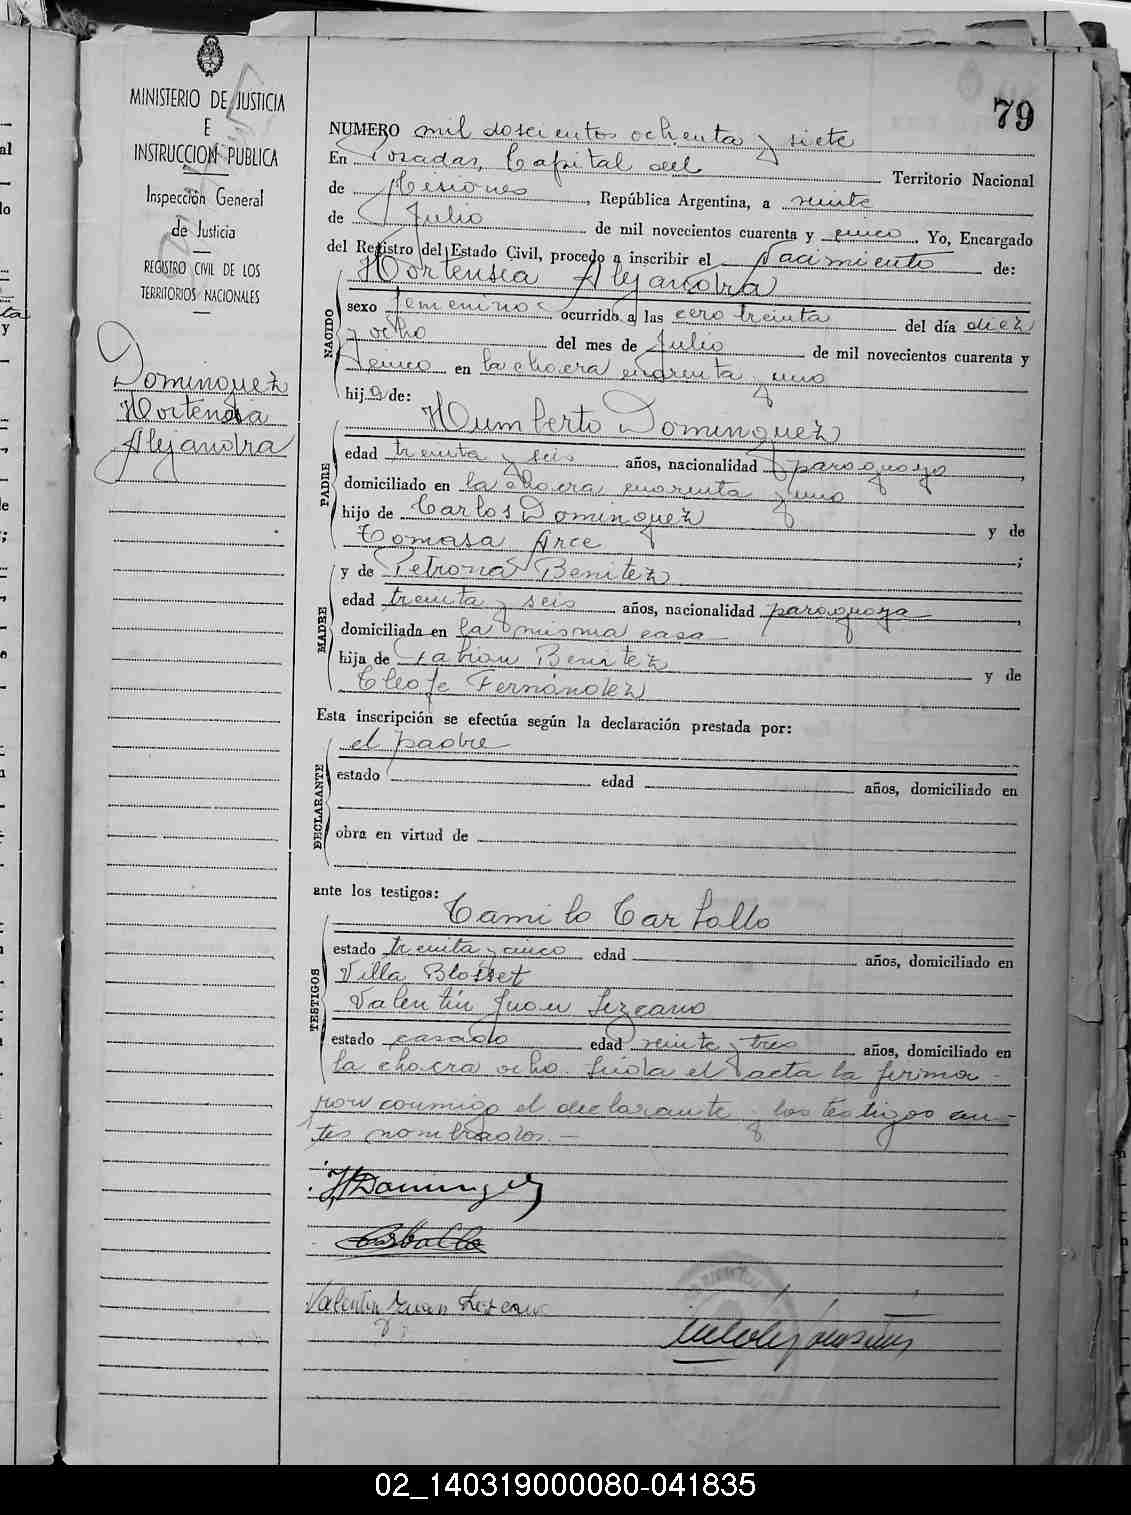 79
MINISTERIO DE JUSTICIA
E
INSTRUCCION PUBLICA
Inspección General
de Justicia
REGISTRO CIVIL DE LOS
TERRITORIOS NACIONALES
Dominguez
Hortensia
Alejandra
NUMERO mil doscientos ochenta y siete
En Posadas, Capital del Territorio Nacional
de Misiones, República Argentina, a veinte
de Julio de mil novecientos cuarenta y cinco. Yo, Encargado
del Registro del Estado Civil, procedo a inscribir el Nacimiento de:
Hortensia Alejandra
NACIDO
sexo femenino ocurrido a las cero treinta del día diez
y ocho del mes de Julio de mil novecientos cuarenta y
cinco en la chacra cuarenta y uno
hija de:
Humberto Dominguez
PADRE
edad treinta y seis años, nacionalidad paraguaya,
domiciliado en la chacra cuarenta y uno
hijo de Carlos Dominguez y de
Tomasa Arce;
y de Petrona Benitez
MADRE
edad treinta y seis años, nacionalidad paraguaya,
domiciliada en la misma casa
hija de Fabian Benitez y de
Cleofe Fernández
Esta inscripción se efectúa según la declaración prestada por:
el padre
DECLARANTE
estado edad años, domiciliado en
obra en virtud de
ante los testigos:
Camilo Carballo
TESTIGOS
estado treinta y cinco edad años, domiciliado en
Villa Blosset
Valentín Juan Lezcano
estado casado edad veinte y tres años, domiciliado en
la chacra ocho. Leida el acta la firma
ron conmigo el declarante y los testigos an-
tes nombrados.—
H Dominguez
Carballo
Valentin Juan Lezcano
02_140319000080-041835